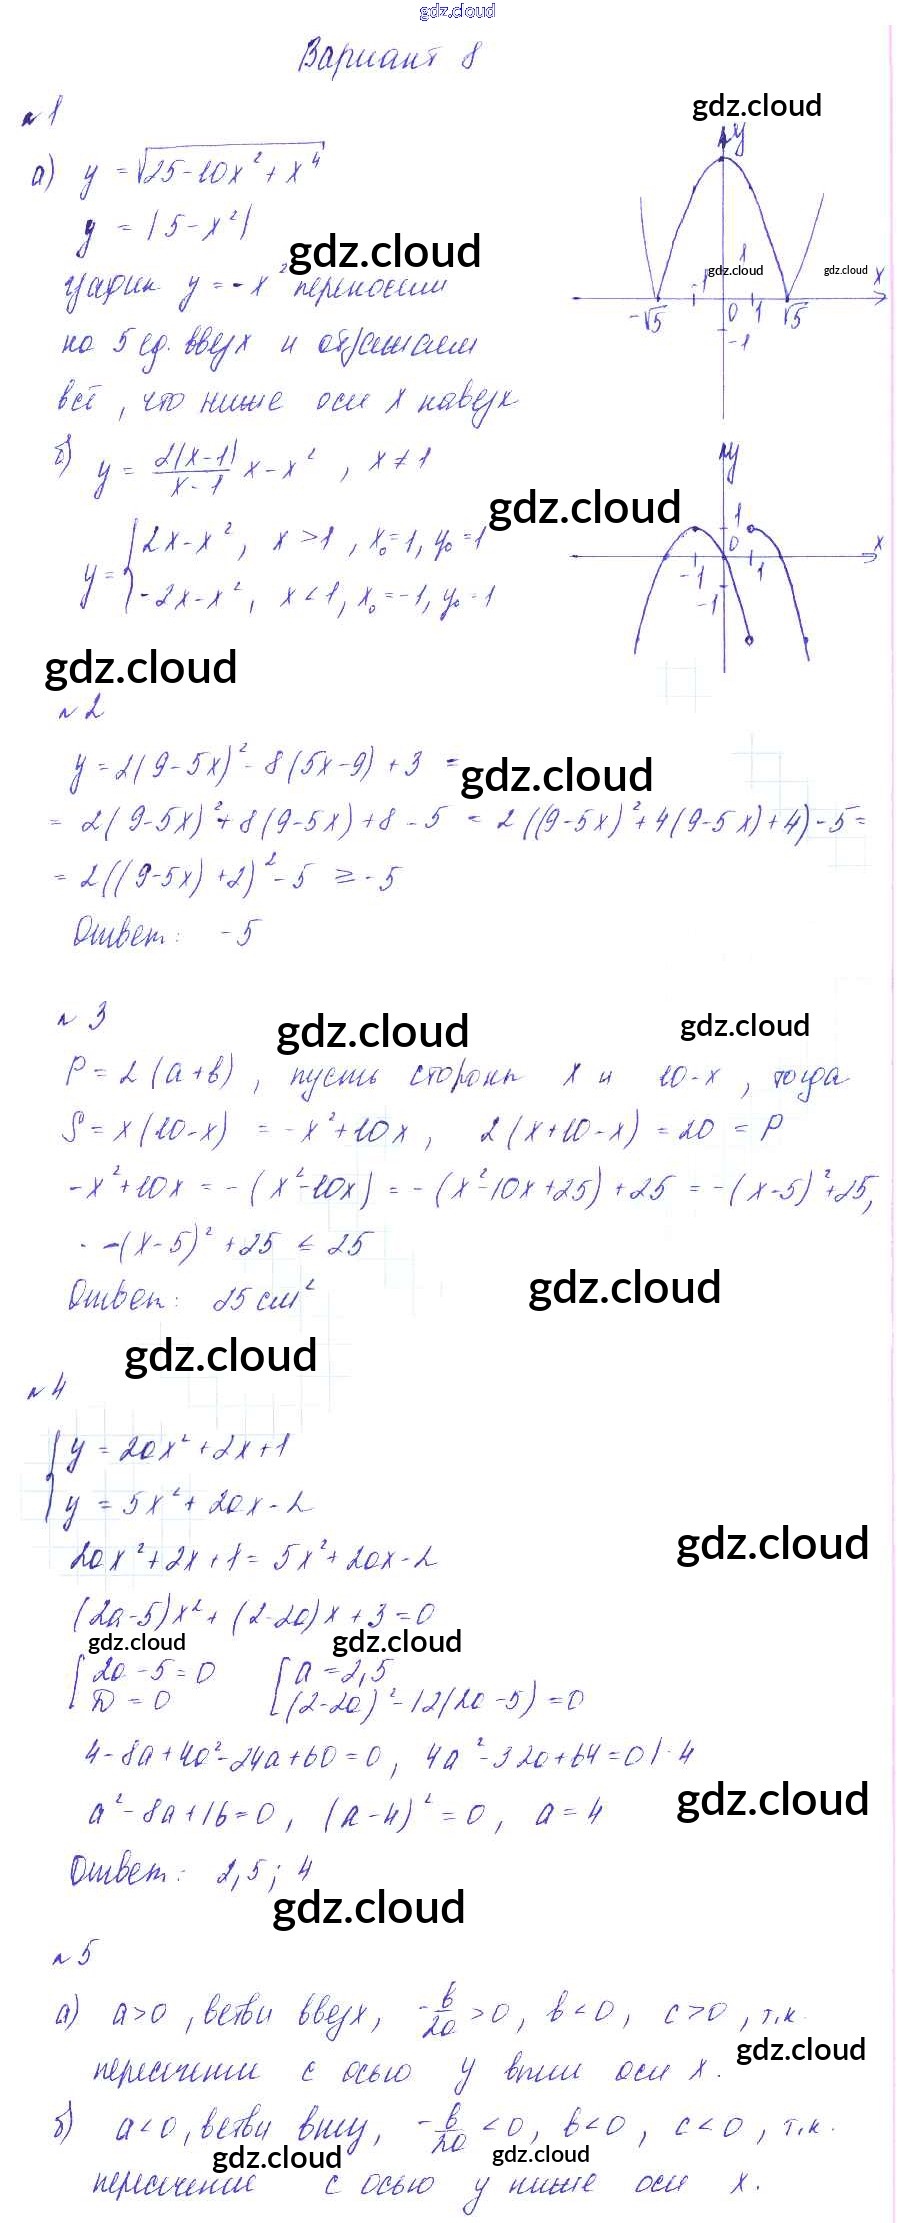 gdz.cloud
Вариант 8
gdz.cloud
№1
а) y = √(25-10x²+x⁴)
y = |5-x²|
gdz.cloud
график y = -x² переносим
на 5 ед. вверх и отражаем
всё, что ниже оси x наверх
y
1
gdz.cloud
gdz.cloud
-1
x
-√5 0 1 √5
-1
б) y = 2|x-1|/(x-1) x - x², x ≠ 1
gdz.cloud
y = { 2x-x², x > 1, x₀=1, y₀=1
-2x-x², x < 1, x₀=-1, y₀=1
y
1
0
x
-1 1
-1
gdz.cloud
№2
y = 2(9-5x)² - 8(5x-9) + 3 =
gdz.cloud
= 2(9-5x)² + 8(9-5x) + 8 - 5 = 2((9-5x)² + 4(9-5x) + 4) - 5 =
= 2((9-5x)+2)² - 5 ≥ -5
Ответ: -5
№3
gdz.cloud
gdz.cloud
P = 2(a+b), пусть стороны x и 10-x, тогда
S = x(10-x) = -x²+10x, 2(x+10-x) = 20 = P
-x²+10x = -(x²-10x) = -(x²-10x+25)+25 = -(x-5)²+25,
-(x-5)²+25 ≤ 25
Ответ: 25 см²
gdz.cloud
gdz.cloud
№4
{ y = 2ax²+2x+1
y = 5x²+2ax-2
2ax²+2x+1 = 5x²+2ax-2
gdz.cloud
(2a-5)x²+(2-2a)x+3=0
gdz.cloud
gdz.cloud
[ 2a-5=0 [ a=2,5
D=0 (2-2a)²-12(2a-5)=0
4-8a+4a²-24a+60=0, 4a²-32a+64=0 |:4
gdz.cloud
a²-8a+16=0, (a-4)²=0, a=4
Ответ: 2,5; 4
gdz.cloud
№5
а) a>0, ветви вверх, -b/2a >0, b<0, c>0, т.к.
gdz.cloud
пересечении с осью y выше оси x.
б) a<0, ветви вниз, -b/2a <0, b<0, c<0, т.к.
gdz.cloud
gdz.cloud
пересечение с осью y ниже оси x.